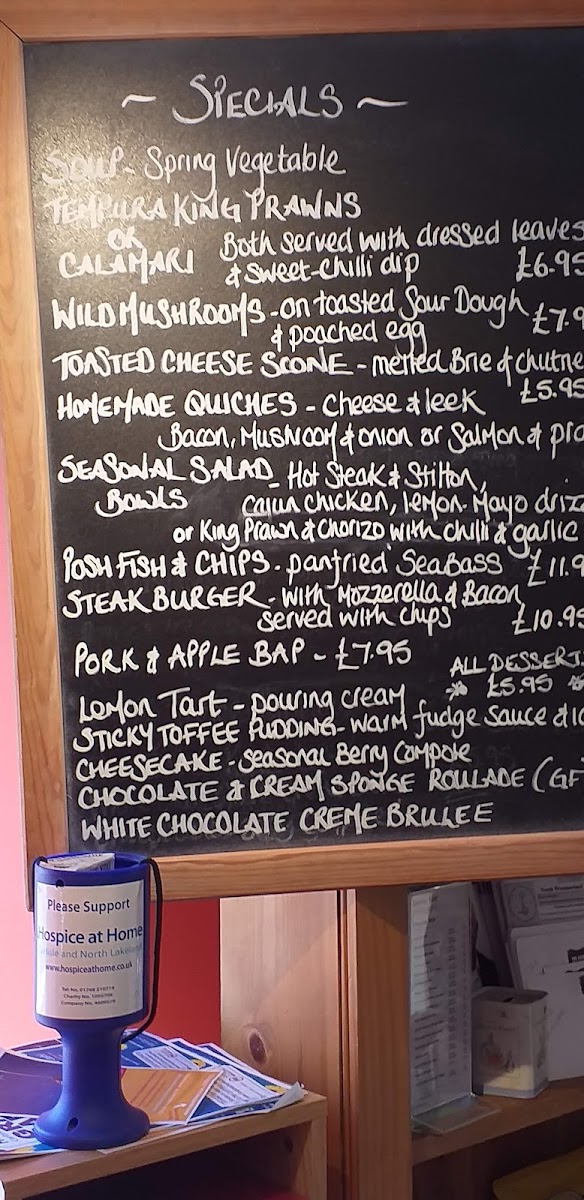 ~ SPECIALS ~
SOUP - Spring Vegetable
TEMPURA KING PRAWNS
OR
CALAMARI Both served with dressed leaves
& Sweet-Chilli dip £6.95
WILD MUSHROOMS - on toasted Sour Dough
& poached egg £7.9
TOASTED CHEESE SCONE - melted Brie & chutne
£5.95
HOMEMADE QUICHES - Cheese & leek
Bacon, Mushroom & onion or Salmon & pra
SEASONAL SALAD - Hot Steak & Stilton,
BOWLS Cajun chicken, lemon-Mayo driz
or King Prawn & Chorizo with chilli & garlic
POSH FISH & CHIPS - panfried SeaBass £11.9
STEAK BURGER - with Mozzerella & Bacon
served with chips £10.95
PORK & APPLE BAP - £7.95
ALL DESSERT
£5.95
Lemon Tart - pouring cream
STICKY TOFFEE PUDDING - warm fudge Sauce & ic
CHEESECAKE - Seasonal Berry Compote
CHOCOLATE & CREAM SPONGE ROULADE (GF
WHITE CHOCOLATE CREME BRULEE
Please Support
Hospice at Home
lisle and North Lakeland
www.hospiceathome.co.uk